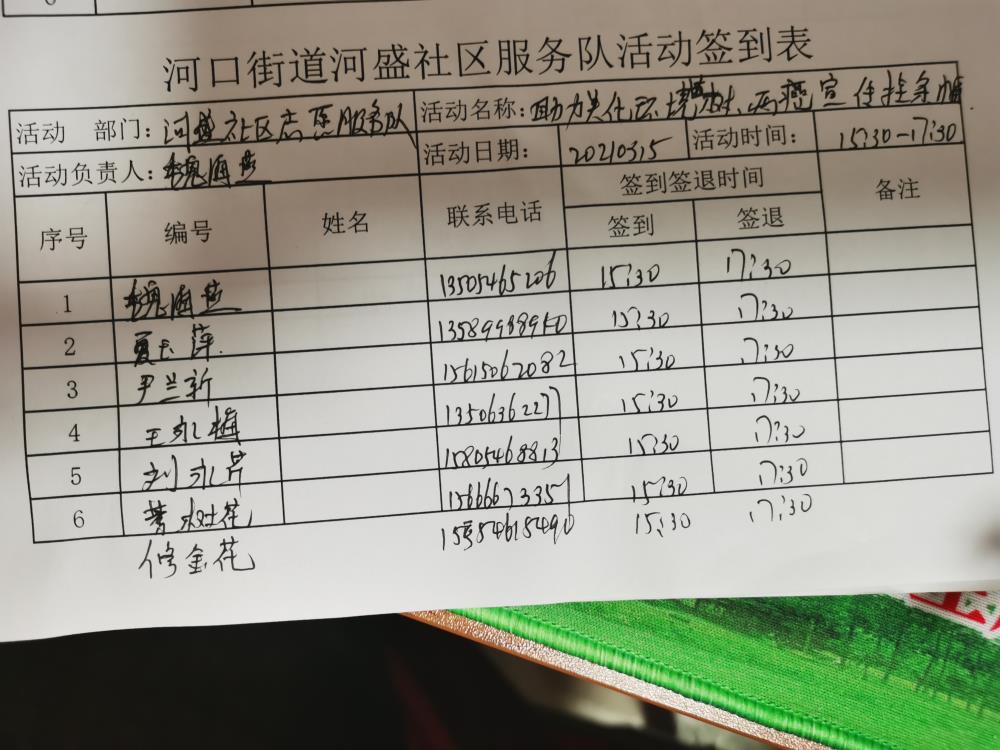 河口街道河盛社区服务队活动签到表
活动 部门：河盛社区志愿服务队 活动名称：助力关住环境 宣传挂条幅
活动负责人：魏海燕 活动日期： 20210315 活动时间： 15:30-17:30
序号 编号 姓名 联系电话 签到签退时间 备注
签到 签退
1 魏海燕 13505465206 15:30 17:30
2 夏 萍 15:30 17:30
3 尹兰新 15615067082 15:30 17:30
4 王永梅 13506362277 15:30 17:30
5 刘永芹 15805468813 15:30 17:30
6 花 15666673357 15:30 17:30
修金花 15:30 17:30